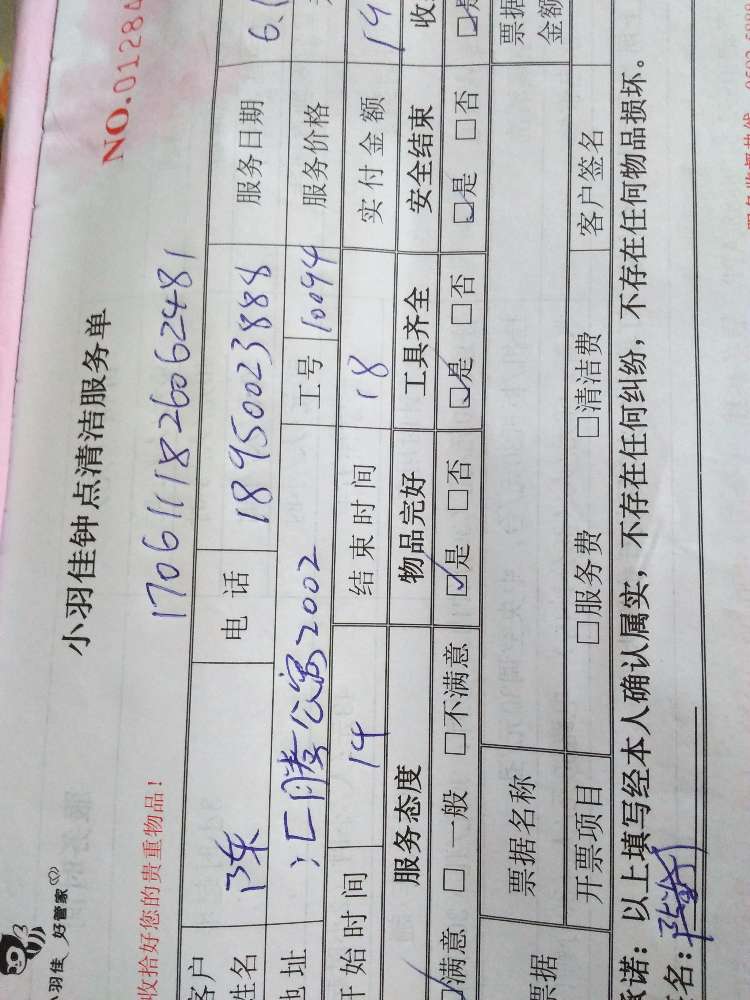 小羽佳 好管家
小羽佳钟点清洁服务单
NO.01284
收拾好您的贵重物品！
170611182606 2481
客户姓名 陈 电话 18950023888 服务日期 6.1
地址 汇腾公寓2002 工号 10094 服务价格
开始时间 14 结束时间 18 实付金额 19
服务态度 物品完好 工具齐全 安全结束 收
满意 □ 一般 □不满意 □是 □否 □是 □否 □是 □否 □是
票据 票据名称 票据金额
开票项目 □服务费 □清洁费 客户签名
承诺：以上填写经本人确认属实，不存在任何纠纷，不存在任何物品损坏。
名：